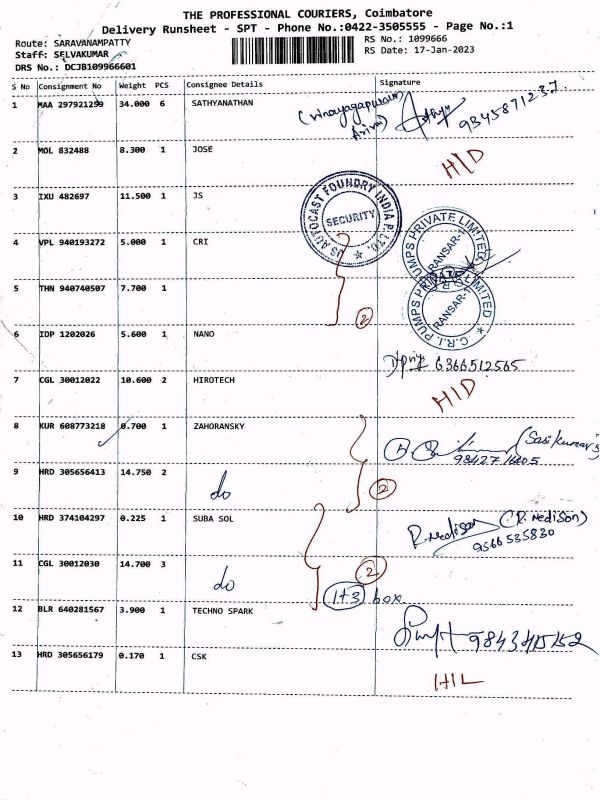 THE PROFESSIONAL COURIERS, Coimbatore
Delivery Runsheet - SPT - Phone No.:0422-3505555 - Page No.:1
Route: SARAVANAMPATTY
RS No.: 1099666
Staff: SELVAKUMAR
RS Date: 17-Jan-2023
DRS No.: DCJB109966601
S No Consignment No Weight PCS Consignee Details Signature
1 MAA 297921299 34.000 6 SATHYANATHAN
(vinayagapuram 9345871237
2 MOL 832488 8.300 1 JOSE H/D
3 IXU 482697 11.500 1 JS
JS AUTOCAST FOUNDRY INDIA P. LTD.
SECURITY
4 VPL 940193272 5.000 1 CRI
C.R.I. PUMPS PRIVATE LIMITED
RANSAR-1
5 THN 940740507 7.700 1 2
C.R.I. PUMPS PRIVATE LIMITED
RANSAR-1
6 IDP 1202026 5.600 1 NANO
6366512565
7 CGL 30012022 10.600 2 HIROTECH H/D
8 KUR 608773218 0.700 1 ZAHORANSKY
(Sasikumar
9 HRD 305656413 14.750 2 do 2
10 HRD 374104297 0.225 1 SUBA SOL
R.Nedison (R. Nedison)
9566535830
11 CGL 30012030 14.700 3 do 2
1+3 box
12 BLR 640281567 3.900 1 TECHNO SPARK
13 HRD 305656179 0.170 1 CSK
H/L